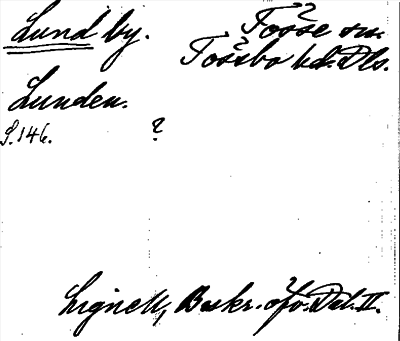 Lund by.
Tösse sn.
Tössbo hd. Dls.
Lunden.
S. 146.
?
Lignell, Beskr. öfv. Dal. II.